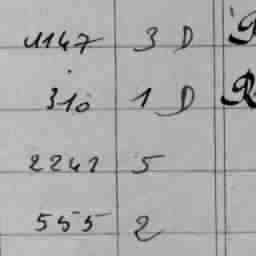 1147 3 D
310 1 D R
2241 5
555 2